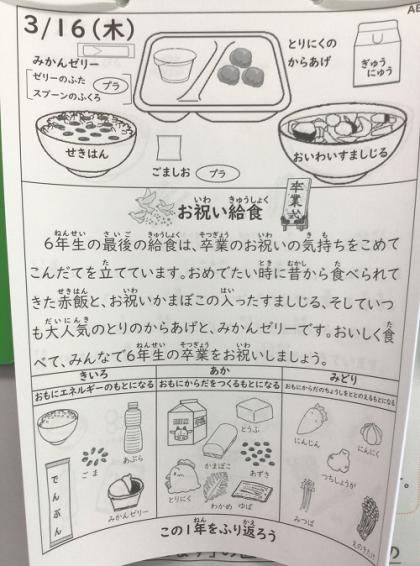 3/16(木)
みかんゼリー
ゼリーのふた
スプーンのふくろ
プラ
とりにくの
からあげ
ぎゅう
にゅう
せきはん
ごましお
プラ
おいわいすましじる
お祝い給食
卒業式
6年生の最後の給食は、卒業のお祝いの気持ちをこめて
こんだてを立てています。おめでたい時に昔から食べられて
きた赤飯と、お祝いかまぼこの入ったすましじる、そしていつ
も大人気のとりのからあげと、みかんゼリーです。おいしく食
べて、みんなで6年生の卒業をお祝いしましょう。
きいろ
あか
みどり
おもにエネルギーのもとになる
おもにからだをつくるもとになる
おもにからだのちょうしをととのえるもとになる
ごま
あぶら
でんぷん
みかんゼリー
とうふ
かまぼこ
あずき
とりにく
わかめ
ゆば
にんじん
にんにく
つちしょうが
みつば
えのきたけ
この1年をふり返ろう